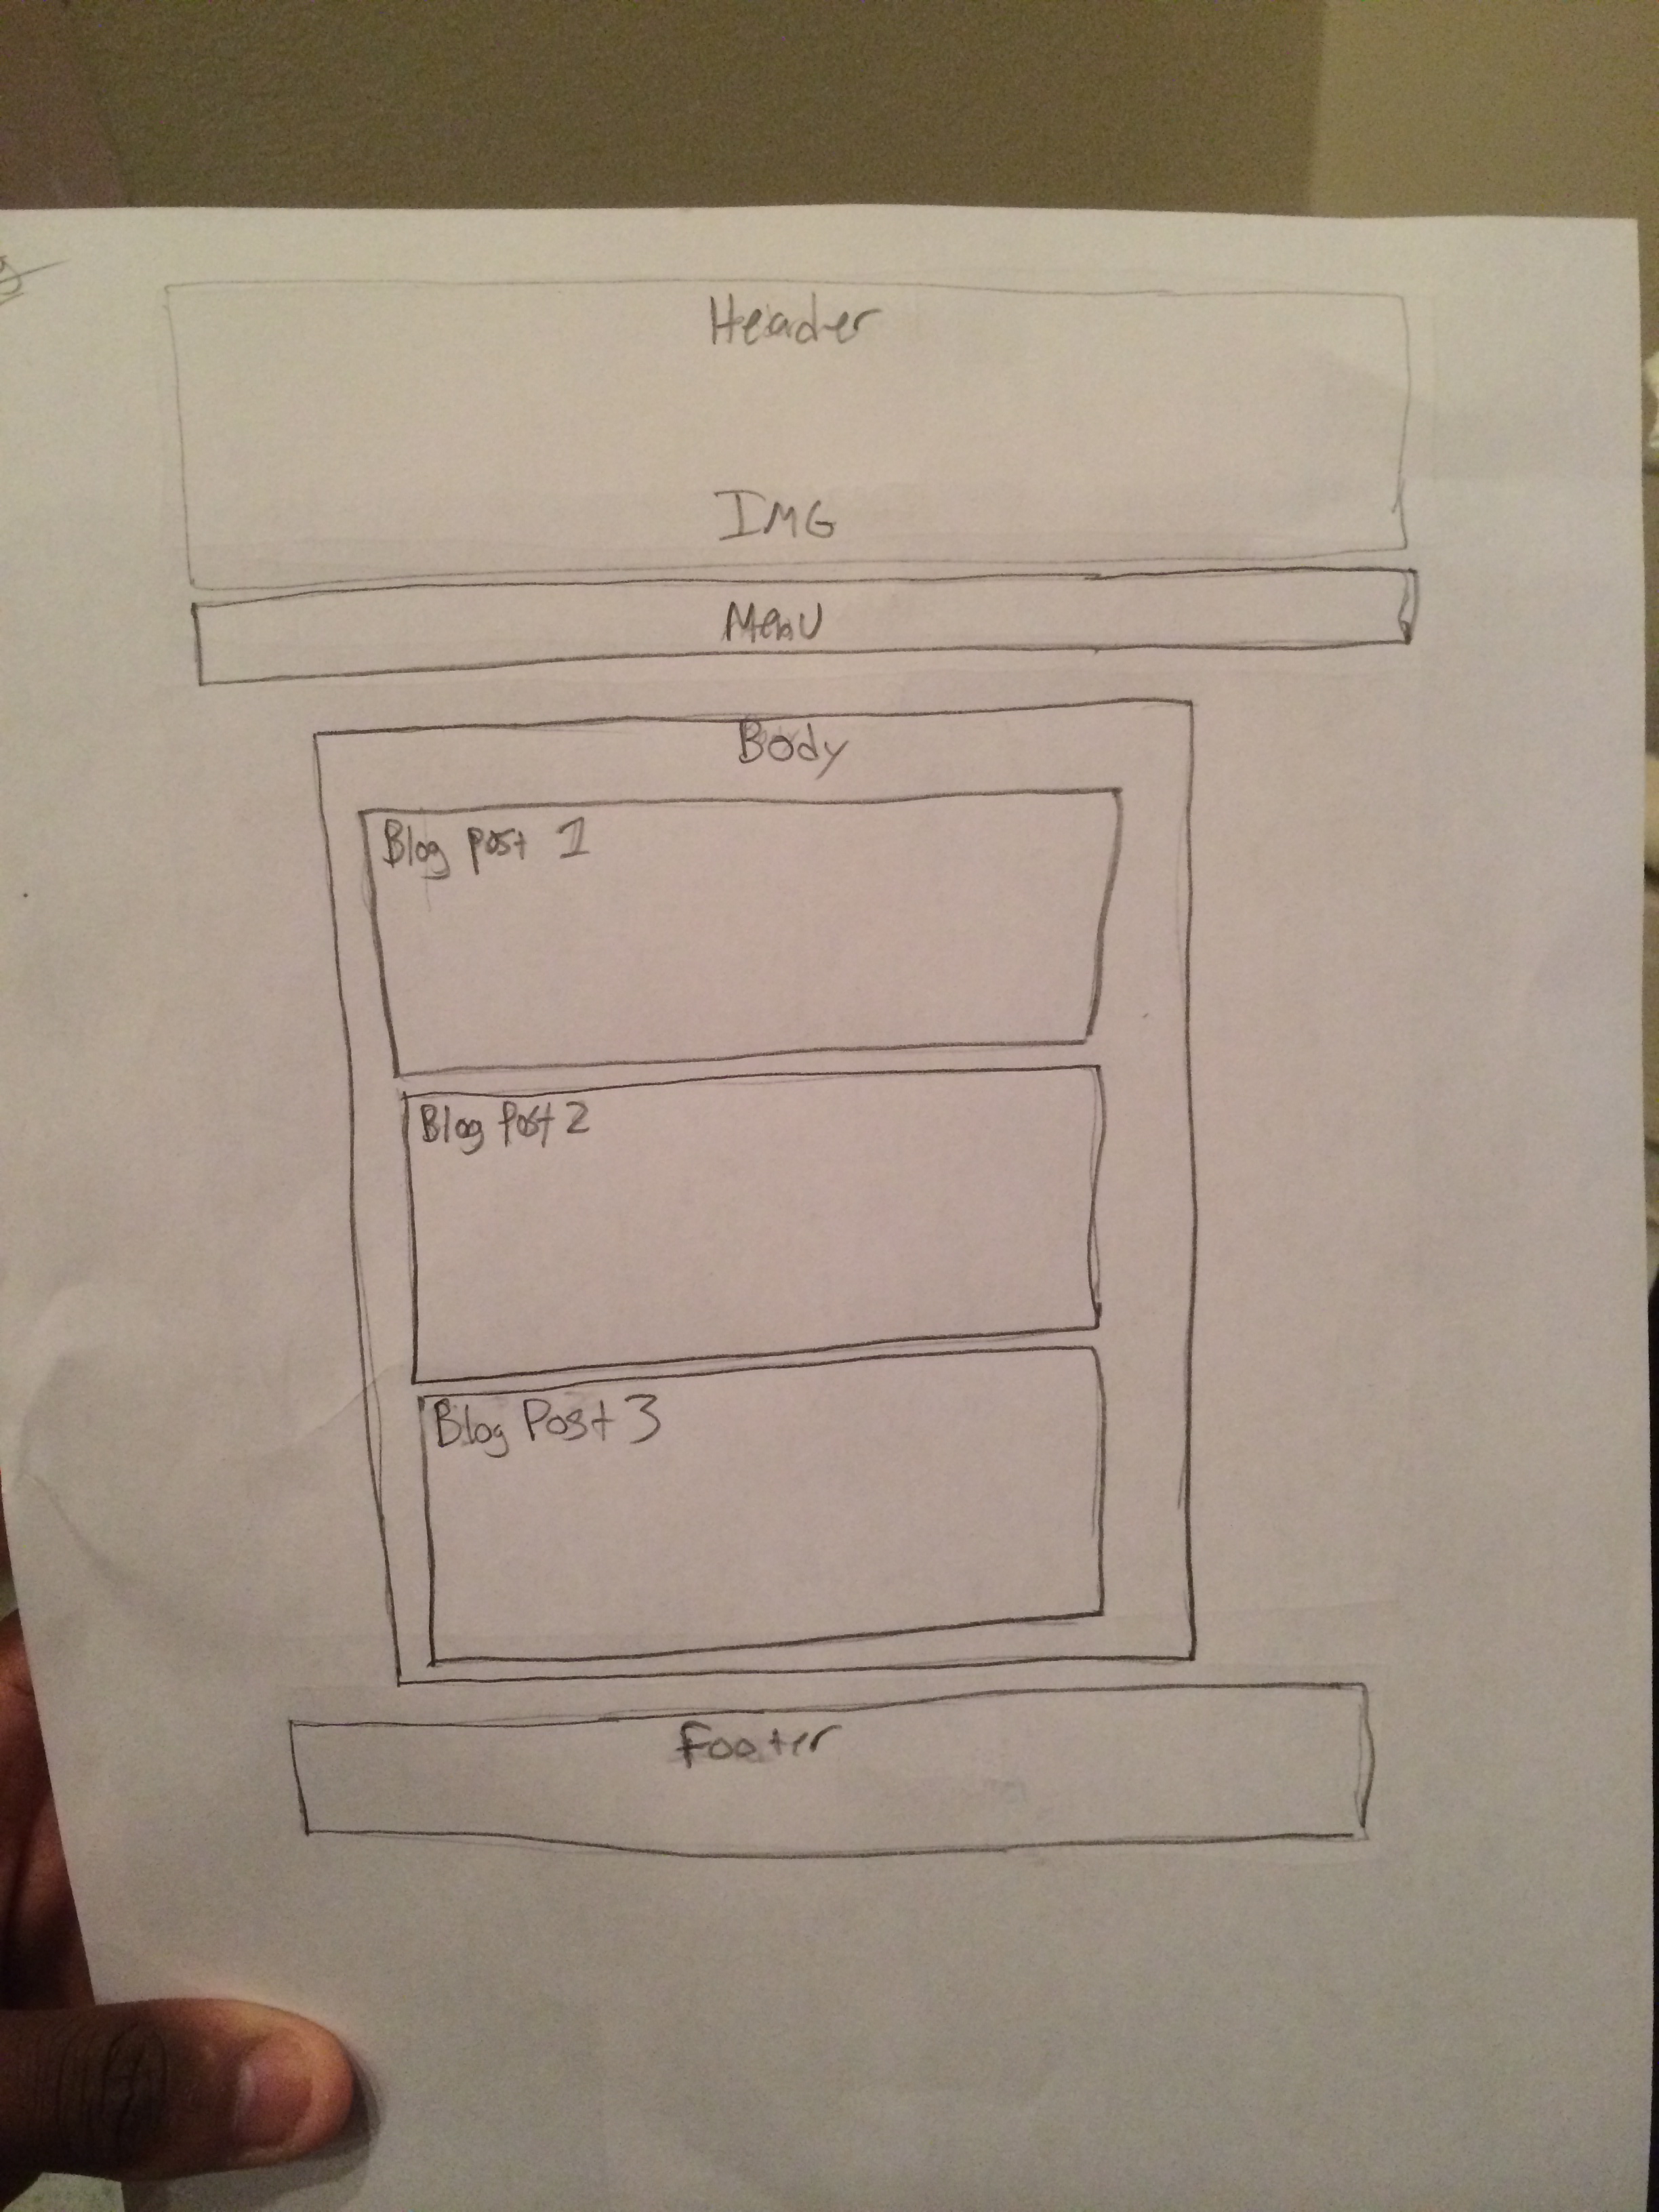 Header
IMG
Menu
Body
Blog post 1
Blog Post 2
Blog Post 3
Footer